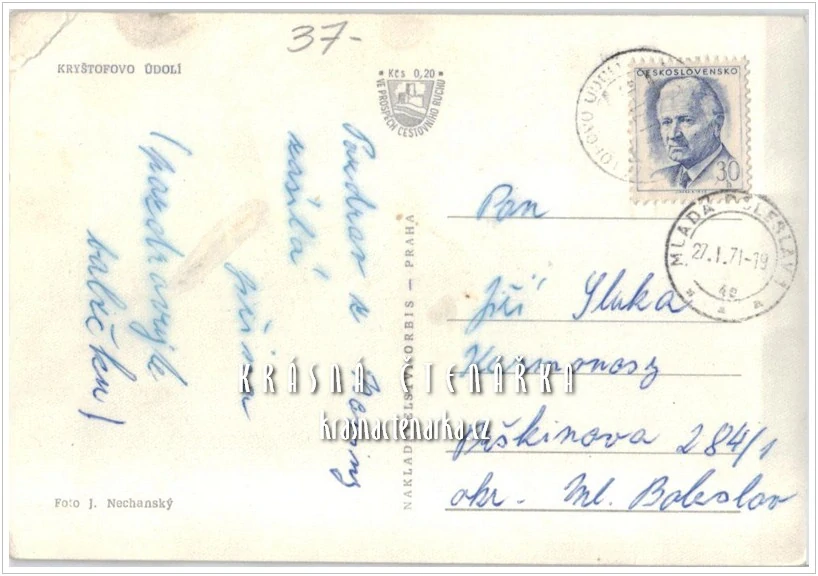 37-
KRYŠTOFOVO ÚDOLÍ
Kčs 0,20
VE PROSPĚCH CESTOVNÍHO RUCHU
ČESKOSLOVENSKO
30
MLADÁ BOLESLAV 1
27.1.71-19
4e
Pozdrav z
zasílá
(pozdravujte
babičku)
NAKLADATELSTVÍ ORBIS — PRAHA
Pan
Jiří Sluka
Kosmonosy
Puškinova 284/1
okr. Ml. Boleslav
KRÁSNÁ ČTENÁŘKA
krasnactenarka.cz
Foto J. Nechanský